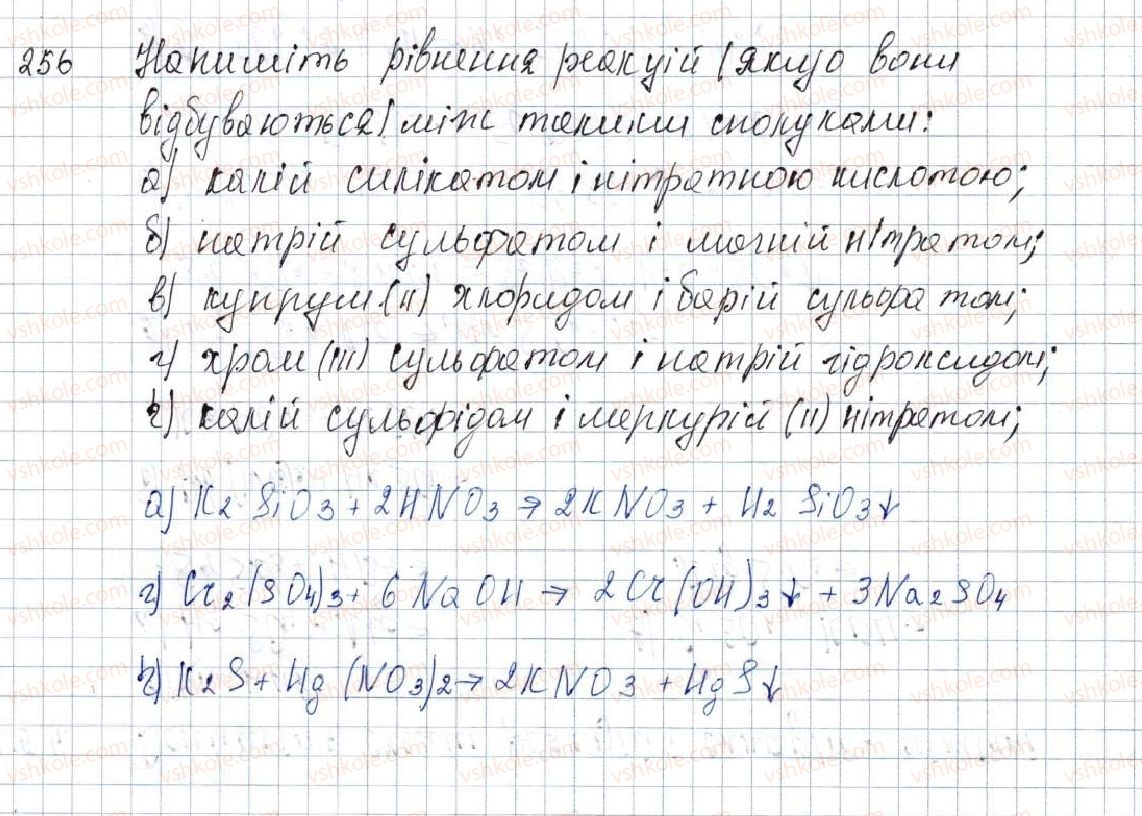 256 Напишіть рівнення реакцій (якщо вони
відбуваються) між такими сполуками:
а) калій силікатом і нітратною кислотою;
б) натрій сульфатом і магній нітратом;
в) купрум (II) хлоридом і барій сульфатом;
г) хром (III) сульфатом і натрій гідроксидом;
ґ) калій сульфідом і меркурій (II) нітратом;
а) K2SiO3 + 2HNO3 → 2KNO3 + H2SiO3↓
г) Cr2(SO4)3 + 6NaOH → 2Cr(OH)3↓ + 3Na2SO4
ґ) K2S + Hg(NO3)2 → 2KNO3 + HgS↓
vshkole.com